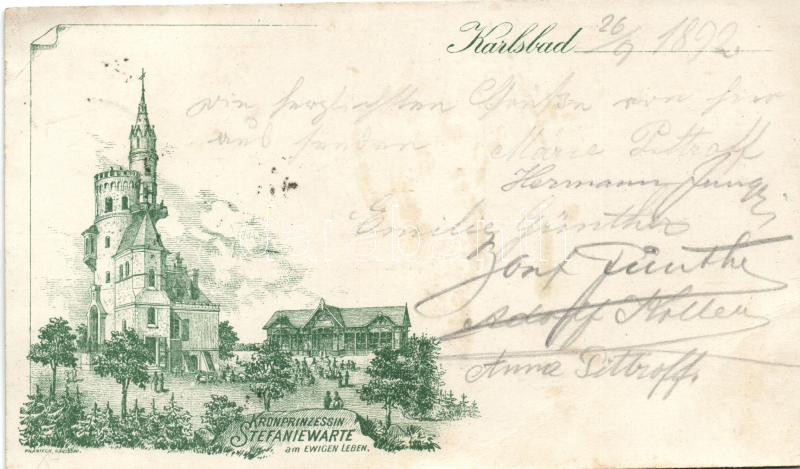 Karlsbad 26/9 1892.
Die herzlichsten Grüße von hier
aus senden Marie Pittroff
Hermann
Emilie Günther
Josef Günther
Adolf
Anna Pittroff.
KRONPRINZESSIN
STEFANIEWARTE
am EWIGEN LEBEN.